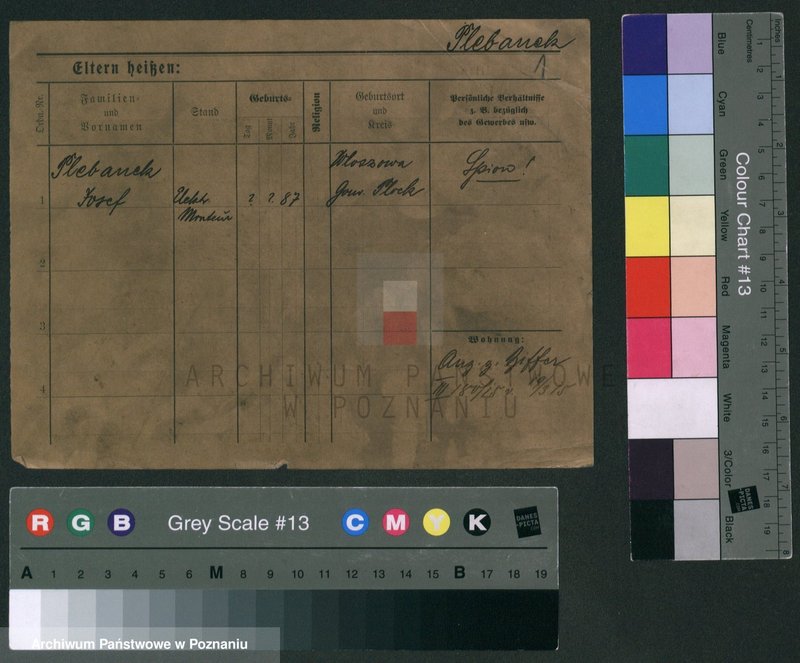 Plebanek
1
Eltern heißen:
Lfde. Nr.
Familien-
und
Vornamen
Stand
Geburts-
Tag
Monat
Jahr
Religion
Geburtsort
und
Kreis
Persönliche Verhältnisse
z. B. bezüglich
des Gewerbes usw.
Plebanek
Josef
Monteur
? ? 87
Gouv. Plock
Spion!
1
2
3
4
Wohnung:
Ang. g.
ARCHIWUM PAŃSTWOWE
W POZNANIU
R G B Grey Scale #13 C M Y K
DANES-PICTA
A 1 2 3 4 5 6 M 8 9 10 11 12 13 14 15 B 17 18 19
Archiwum Państwowe w Poznaniu
Colour Chart #13
Blue
Cyan
Green
Yellow
Red
Magenta
White
3/Color
Black
Centimetres
1 2 3 4 5 6 7 8 9 10 11 12 13 14 15 16 17 18 19
Inches
1 2 3 4 5 6 7 8
DANES-PICTA